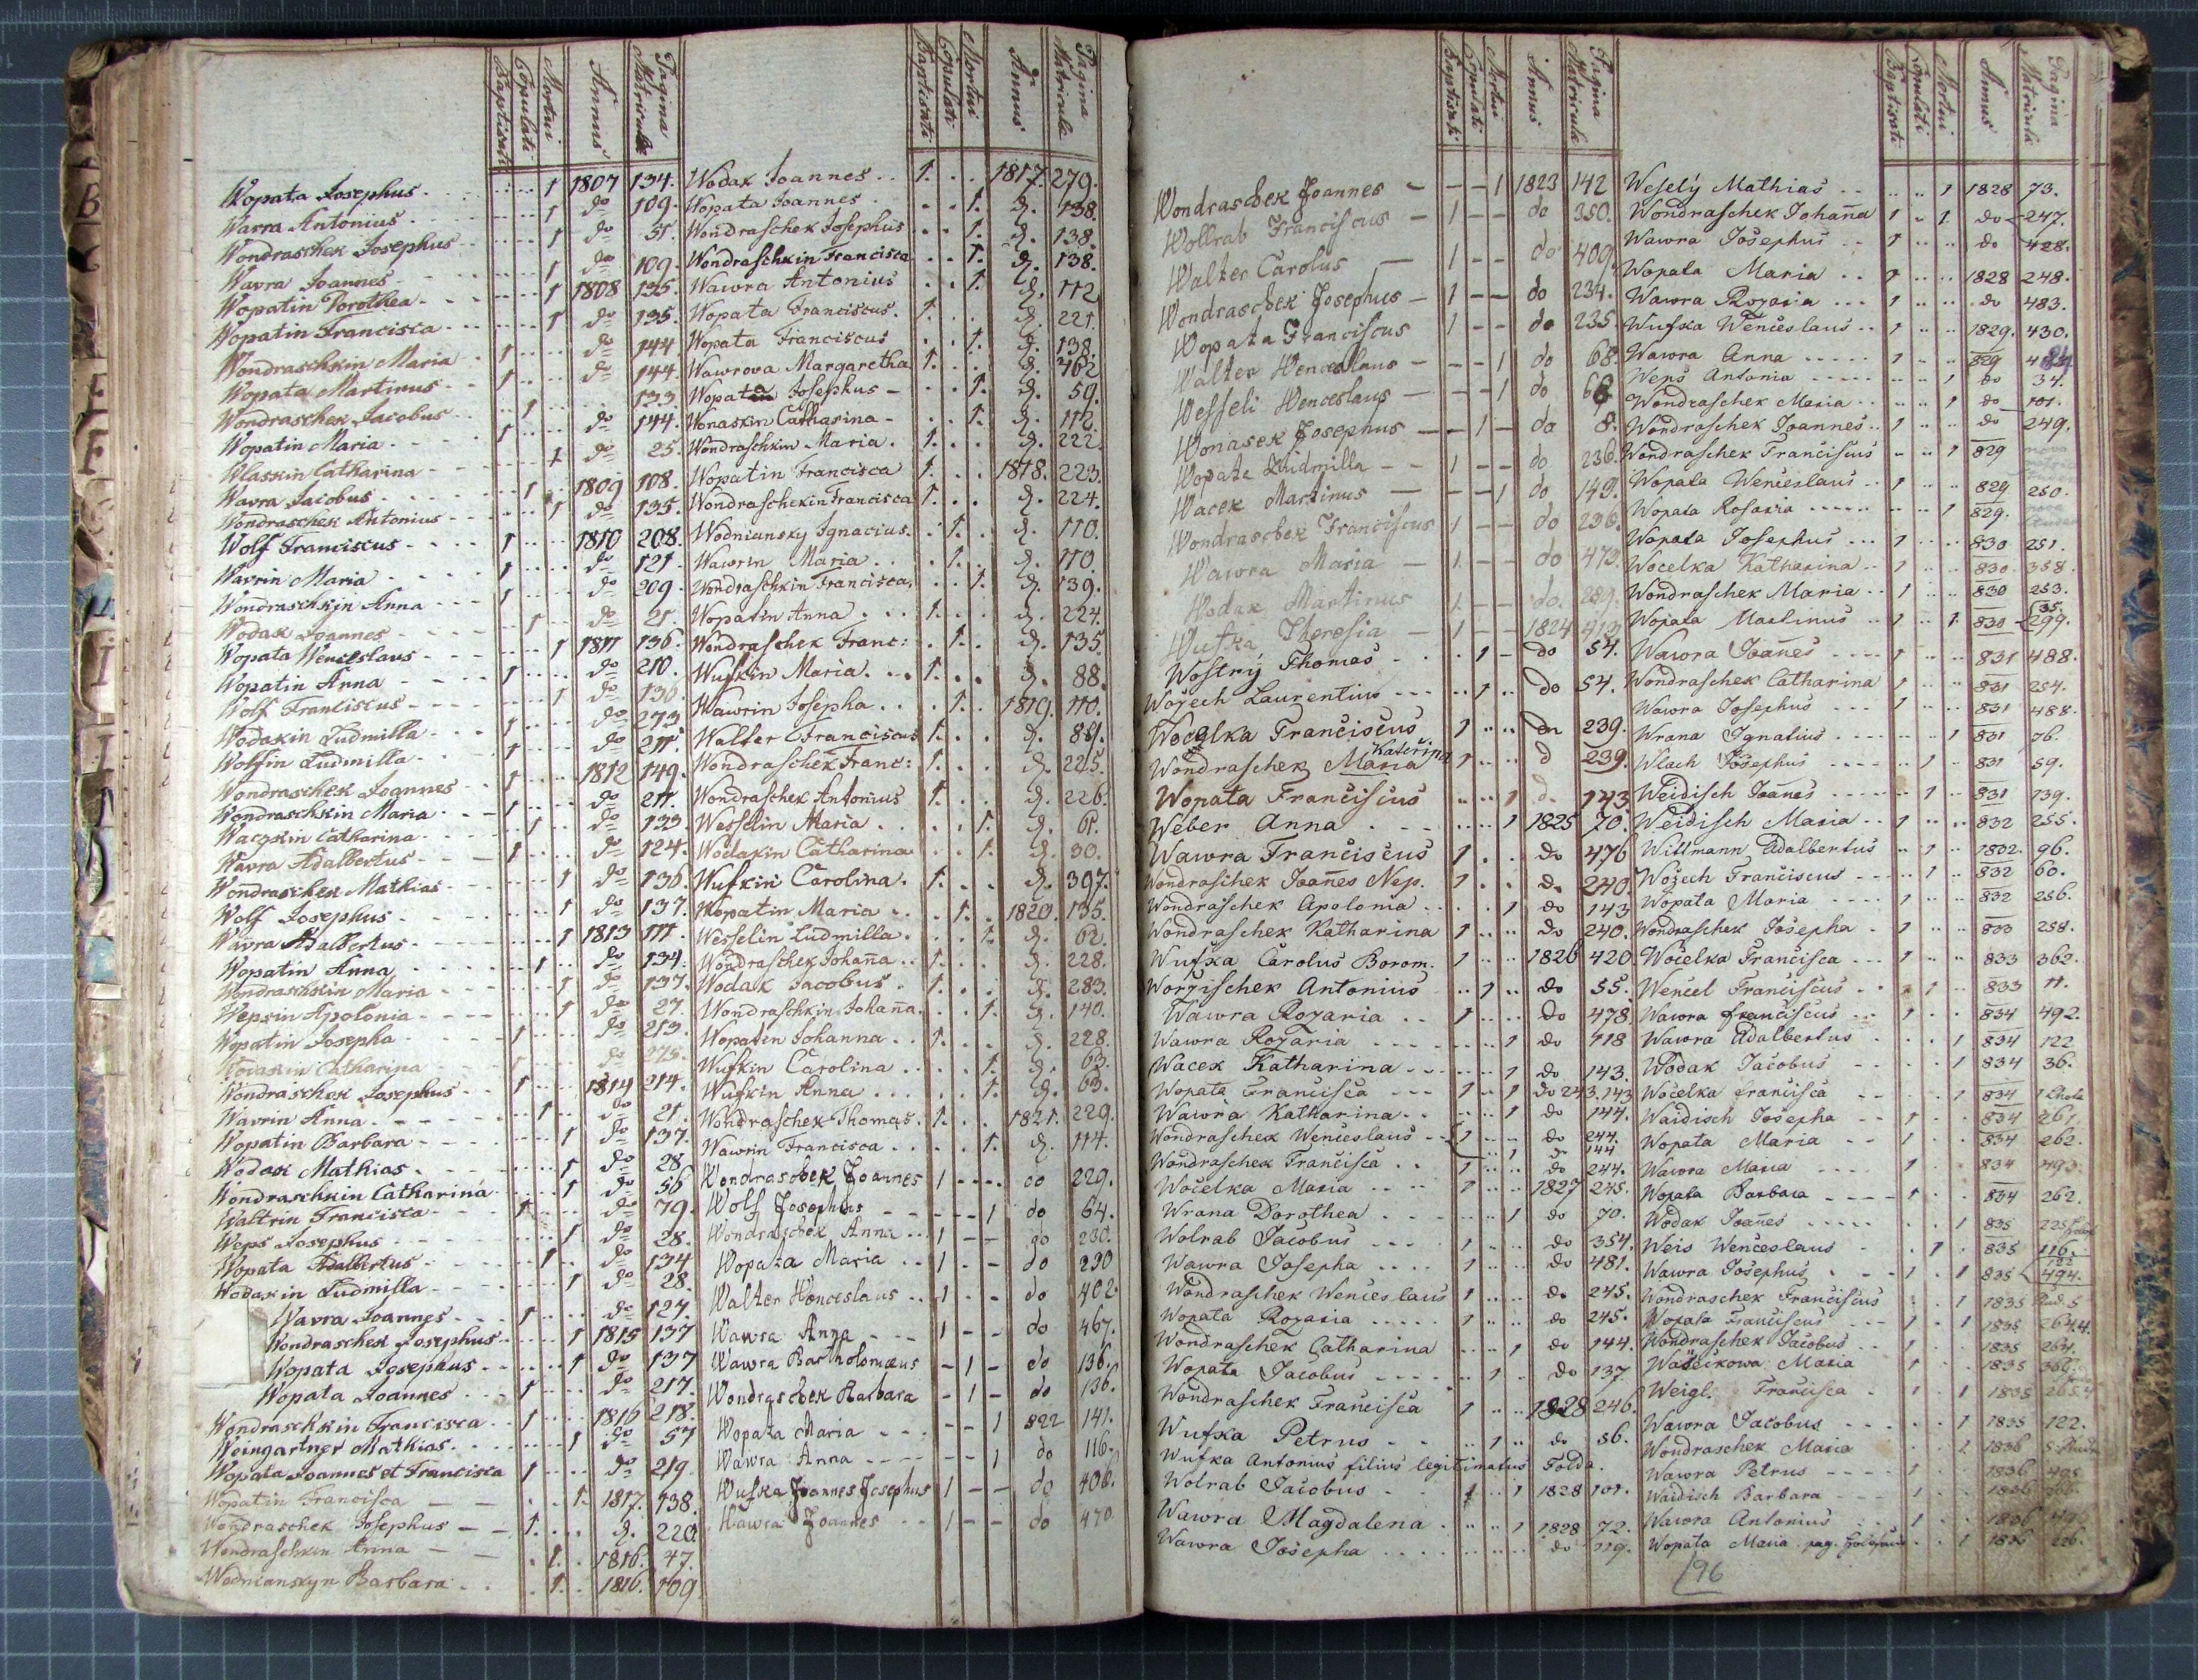 Baptisati Copulati Mortui Annus Pagina Matriculae
Wopata Josephus 1 1807 134.
Wavra Antonius 1 do 109.
Wondraschek Josephus 1 do
Wavra Joannes 1 do 109.
Wopatin Dorothea 1 1808 135.
Wopatin Francisca 1 do 135.
Wondraschkin Maria 1 do 144
Wopata Martinus 1 do 144
Wondraschek Jacobus 1 133
Wopatin Maria 1 do 144.
Wlaskin Catharina 1 do 25.
Wavra Jacobus 1 1809 108.
Wondraschek Antonius 1 do 135.
Wolf Franciscus 1 1810 208.
Wavrin Maria 1 do 121.
Wondraschkin Anna 1 do 209.
Wodak Joannes 1 do 21.
Wopata Wenceslaus 1 1811 136.
Wopatin Anna 1 do 210.
Wolf Franciscus 1 do 136.
Wodakin Ludmilla 1 do 273
Wolfin Ludmilla 1 do 211.
Wondraschek Joannes 1 1812 149.
Wondraschkin Maria 1 do 211.
Catharina 1 do 133
Wavra Adalbertus 1 do 124.
Wondraschek Mathias 1 do 136.
Wolf Josephus 1 do 137.
Wavra Adalbertus 1 1813 111.
Wopatin Anna 1 do 134.
Wondraschkin Maria 1 do 137.
Wepsin Apolonia 1 do 27.
Wopatin Josepha 1 do 213.
Wodakin Catharina do 275.
Wondraschek Josephus 1 1814 214.
Wavrin Anna 1 do 21.
Wopatin Barbara 1 do 137.
Wodak Mathias 1 do 28
Wondraschkin Catharina 1 do 56
Waltrin Francisca 1 do 79.
Weps Josephus 1 do 28.
Wopata Adalbertus 1 do 134
Wodakin Ludmilla 1 do 28.
Wavra Joannes 1 do 127.
Wondraschek Josephus 1 1815 137
Wopata Josephus 1 do 137
Wopata Joannes 1 do 217.
Wondraschkin Francisca 1 1816 218.
Weingartner Mathias 1 do 57
Wopata Joannes et Francisca 1 do 219.
Wopatin Francisca 1. 1817. 138.
Wondraschek Josephus 1. d. 220.
Wondraschkin Anna 1. 1816. 47.
Wodnianskyn Barbara 1. 1816. 109
Baptisati Copulati Mortui Annus Pagina Matricula
Wodak Joannes 1. 1817. 279.
Wopata Joannes 1. d. 138.
Wondraschek Josephus 1. d. 138.
Wondraschkin Francisca 1. d. 138.
Wawra Antonius 1. d. 112
Wopata Franciscus 1. d. 221.
Wopata Franciscus 1. d. 138.
Wawrova Margaretha 1. d. 462
Wopata Josephus 1. d. 59.
Wonaskin Catharina 1. d. 112.
Wondraschkin Maria 1. d. 222.
Wopatin Francisca 1. 1818. 223.
Wondraschekin Francisca 1. d. 224.
Wodniansky Ignacius 1. d. 110.
Wawrin Maria 1. d. 110.
Wondraschkin Francisca 1. d. 139.
Wopatin Anna 1. d. 224.
Wondraschek Franc: 1. d. 135.
Wufkin Maria 1. d. 88.
Wawrin Josepha 1. 1819. 110.
Walter Franciscus 1. d. 89.
Wondraschek Franc: 1. d. 225.
Wondraschek Antonius 1. d. 226.
Wesselin Maria 1. d. 61.
Wodakin Catharina 1. d. 30.
Wufkin Carolina 1. d. 397.
Wopatin Maria 1. 1820. 135.
Wesselin Ludmilla 1. d. 62.
Wondraschek Johana 1. d. 228.
Wodak Jacobus 1. d. 283.
Wondraschkin Johana 1. d. 140.
Wopatin Johanna 1. d. 228.
Wufkin Carolina 1. d. 63.
Wufkin Anna 1. d. 63.
Wondraschek Thomas 1. 1821. 229.
Wawrin Francisca 1. d. 114.
Wondraschek Joannes 1 do 229.
Wolf Josephus 1 do 64.
Wondraschek Anna 1 do 230.
Wopata Maria 1 do 230
Walter Wenceslaus 1 do 402.
Wawra Anna 1 do 467.
Wawra Bartholomaeus 1 do 136.
Wondraschek Barbara 1 do 136.
Wopata Maria 1 822 141.
Wawra Anna 1 do 116.
Wufka Joannes Josephus 1 do 406.
Wawra Joannes 1 do 470.
Baptisati Copulati Mortui Annus Pagina Matricula
Wondraschek Joannes 1 1823 142
Wollrab Franciscus 1 do 350.
Walter Carolus 1 do 409.
Wondraschek Josephus 1 do 234.
Wopata Franciscus 1 do 235.
Walter Wenceslaus 1 do 68.
Wesseli Wenceslaus 1 do
Wonasek Josephus 1 do 8.
Wopata Ludmilla 1 do 236.
Wacek Martinus 1 do 149.
Wondraschek Franciscus 1 do 236.
Wawra Maria 1 do 473.
Wodak Martinus 1 do 289.
Wufka Theresia 1 1824 413
Wostrý Thomas 1 do 54.
Wojech Laurentius 1 do 54.
Wocelka Franciscus 1 do 239.
Kateřina
Wondraschek Maria 1 d 239.
Wopata Franciscus 1 d. 143
Weber Anna 1 1825 70.
Wawra Franciscus 1 do 476
Wondraschek Joanes Nep. 1 do 240.
Wondraschek Apolonia 1 do 143
Wondraschek Katharina 1 do 240.
Wufka Carolus Borom. 1 1826 420.
Worzischek Antonius 1 do 55.
Wawra Rozaria 1 do 478.
Wawra Rozaria 1 do 118
Wacek Katharina 1 do 143.
Wopata Francisca 1 1 do 243.143
Wawra Katharina 1 do 144.
Wondraschek Wenceslaus 1 do 244.
1 do 144
Wondraschek Francisca 1 do 244.
Wocelka Maria 1 1827 245.
Wrana Dorothea 1 do 70.
Wolrab Jacobus 1 do 354.
Wawra Josepha 1 do 481.
Wondraschek Wenceslaus 1 do 245.
Wopata Rozaria 1 do 245.
Wondraschek Catharina 1 do 144.
Wopata Jacobus 1 do 137
Wondraschek Francisca 1 1828 246.
Wufka Petrus 1 do 56.
Wufka Antonius filius legitimatus Folda.
Wolrab Jacobus 1 1828 101.
Wawra Magdalena 1 1828 72.
Wawra Josepha do 119.
Baptisati Copulati Mortui Annus Pagina Matricula
Weselý Mathias 1 1828 73.
Wondraschek Johana 1 1 do 247.
Wawra Josephus 1 do 428.
Wopata Maria 1 1828 248.
Wawra Rozaria 1 do 483.
Wufka Wenceslaus 1 1829. 430.
Wawra Anna 1 829
Weps Antonia 1 do 34.
Wondraschek Maria 1 do 101.
Wondraschek Joannes 1 do 249.
Wondraschek Franciscus 1 829
Wopata Wenceslaus 1 829 250.
Wopata Rosaria 1 829.
Wopata Josephus 1 830 251.
Wocelka Katharina 1 830 358.
Wondraschek Maria 1 830 253.
Wopata Martinus 1 1 830 35. 299.
Wawra Joanes 1 831 488.
Wondraschek Catharina 1 831 254.
Wawra Josephus 1 831 488.
Wrana Ignatius 1 831 76.
Wlach Josephus 1 831 59.
Weidisch Joanes 1 831 139.
Weidisch Maria 1 832 255.
Willmann Adalbertus 1 1832. 96.
Wojech Franciscus 1 832 60.
Wopata Maria 1 832 256.
Wondraschek Josepha 1 833 258.
Wocelka Francisca 1 833 362.
Wencel Franciscus 1 833 11.
Wawra franciscus 1 834 492.
Wawra Adalbertus 1 834 122
Wodak Jacobus 1 834 36.
Wocelka francisca 1 834
Waidisch Josepha 1 834 261.
Wopata Maria 1 834 262.
Wawra Maria 1 834 493.
Wopata Barbara 1 834 262.
Wodak Joanes 1 835
Weis Wenceslaus 1 835 116.
Wawra Josephus 1 1 835 122 494.
Wondraschek Franciscus 1 1835
Wopata Franciscus 1 1 1835
Wondraschek Jacobus 1 1835 264.
Maria 1 1835
Weigl Francisca 1 1835
Wawra Jacobus 1 1835 122.
Wondraschek Maria 1836
Wawra Petrus 1 1836 495
Waidisch Barbara 1 1836
Wawra Antonius 1 1836
Wopata Maria 1 1836
196